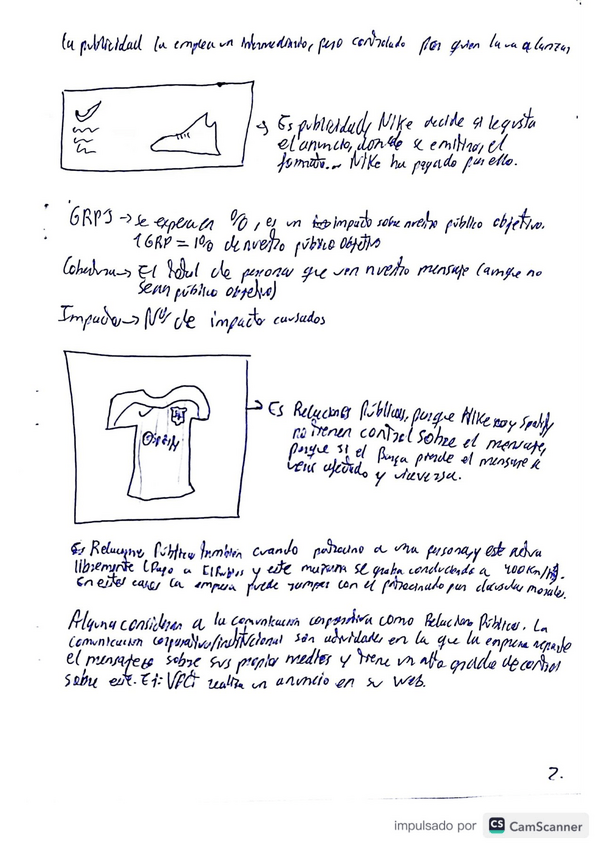 La publicidad la emplea un intermediario, pero controlado por quien la va a lanzar
→ Es publicidad, Nike decide si le gusta
el anuncio, donde se emitira, el
formato... Nike ha pagado por ello.
GRPS → se expresa en %, es un impacto sobre nuestro público objetivo.
1 GRP = 1% de nuestro público objetivo
Cobertura → El total de personas que ven nuestro mensaje (aunque no
sean público objetivo)
Impactos → Nº de impactos causados
Spotify
→ Es Relaciones Públicas, porque Nike y Spotify
no tienen control sobre el mensaje,
porque si el Barça pierde el mensaje se
verá afectado y viceversa.
Es Relaciones Públicas también cuando patrocino a una persona, y este actúa
libremente (Pago a El Rubius y este mañana se graba conduciendo a 400 Km/h).
En estos casos la empresa puede romper con el patrocinado por clausulas morales.
Algunos consideran a la comunicación corporativa como Relaciones Públicas. La
comunicacion corporativa/institucional son actividades en la que la empresa reparte
el mensaje sobre sus propios medios y tiene un alto grado de control
sobre este. Ej: realiza un anuncio en su web.
2.
impulsado por CS CamScanner